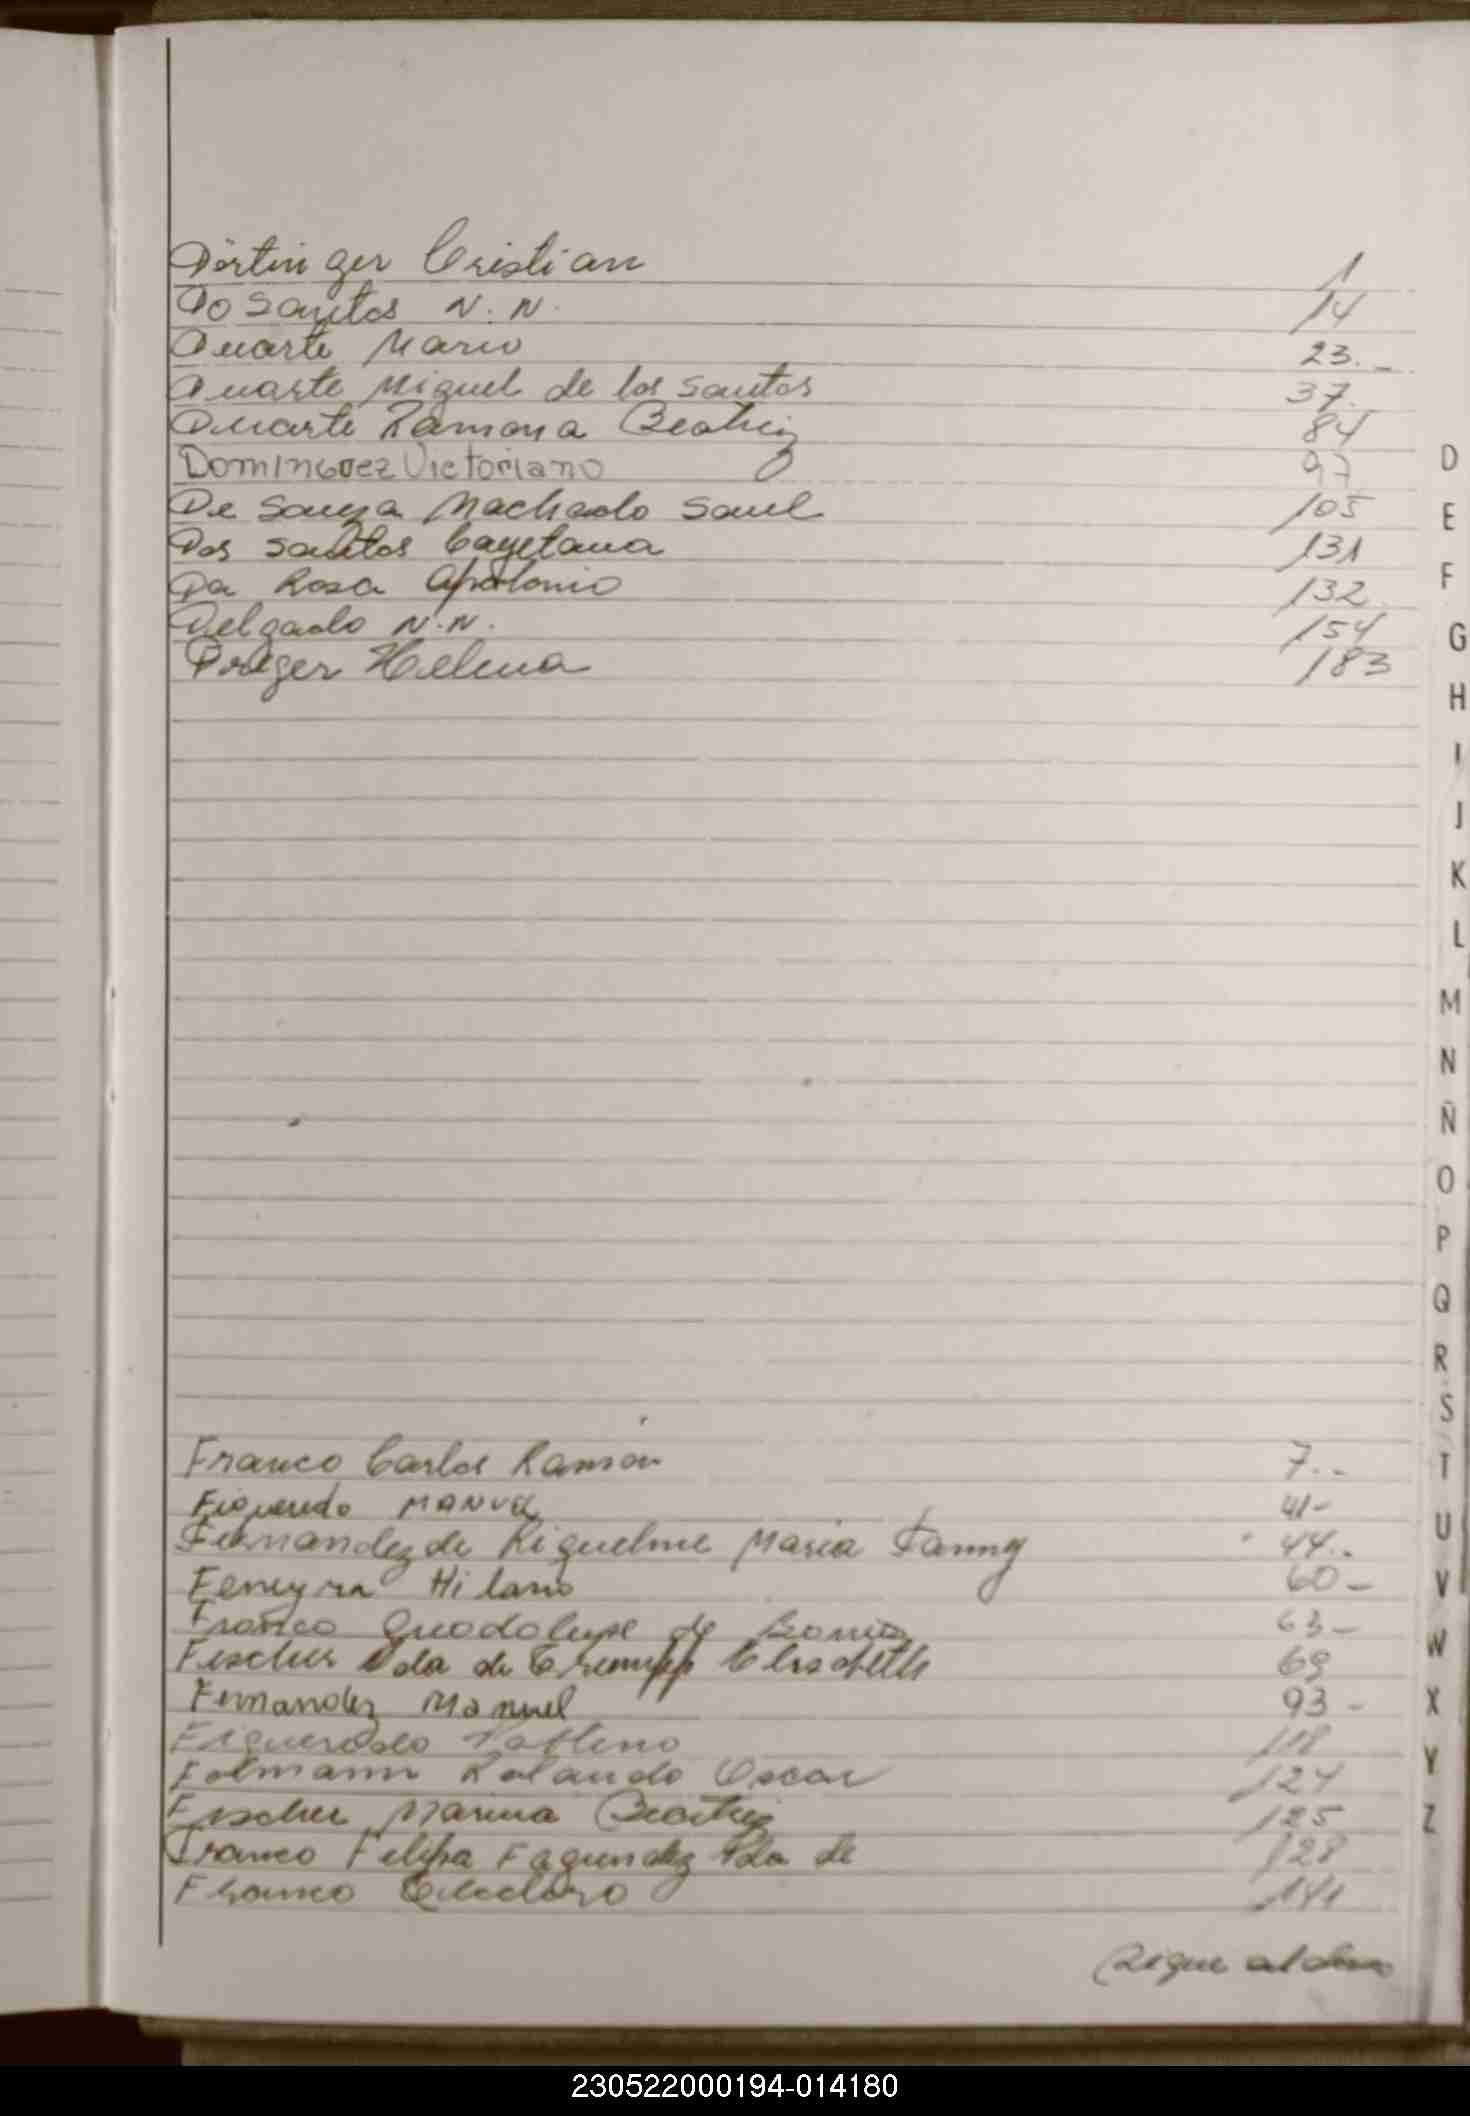 Dörtinger Cristian 1
Do Santos N. N. 14
Duarte Mario 23.-
Duarte Miguel de los Santos 37.
Duarte Ramona Beatriz 84
Dominguez Victoriano 97
De Souza Machado Saul 105
Dos Santos Cayetana 131
Da Rosa Apolonio 132
Delgado N.N. 154
Dreger Helena 183
D
E
F
G
H
I
J
K
L
M
N
Ñ
O
P
Q
R
S
T
U
V
W
X
Y
Z
Franco Carlos Ramon 7.-
Figueredo Manuel 41-
Fernandez de Riquelme Maria Fanny 44.-
Ferreyra Hilario 60-
Franco Guadalupe de 63-
Fischer Vda de Elisabeth 69
Fernandez Manuel 93-
Figueredo 118
Folmann Rolando Oscar 124
Fischer Marina Beatriz 125
Franco Felipa Fagundez Vda de 128
Franco 181
(Sigue al dorso
230522000194-014180